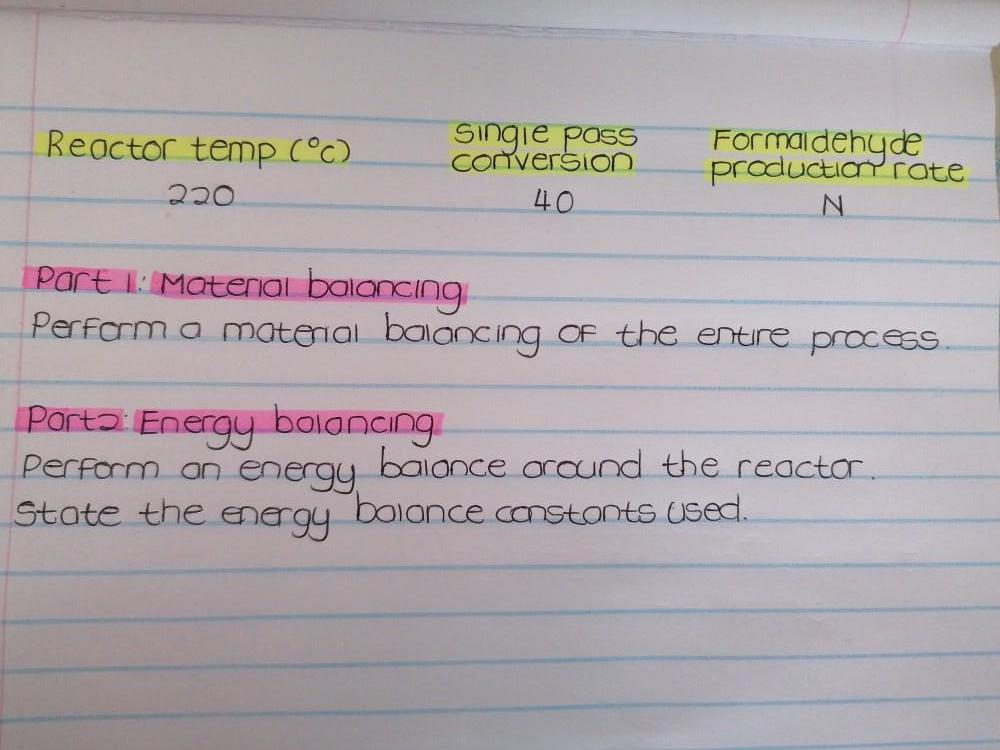 Reactor temp (°C) single pass conversion Formaldehyde production rate
220 40 N
Part 1: Material balancing
Perform a material balancing of the entire process.
Part2: Energy balancing
Perform an energy balance around the reactor.
State the energy balance constants used.